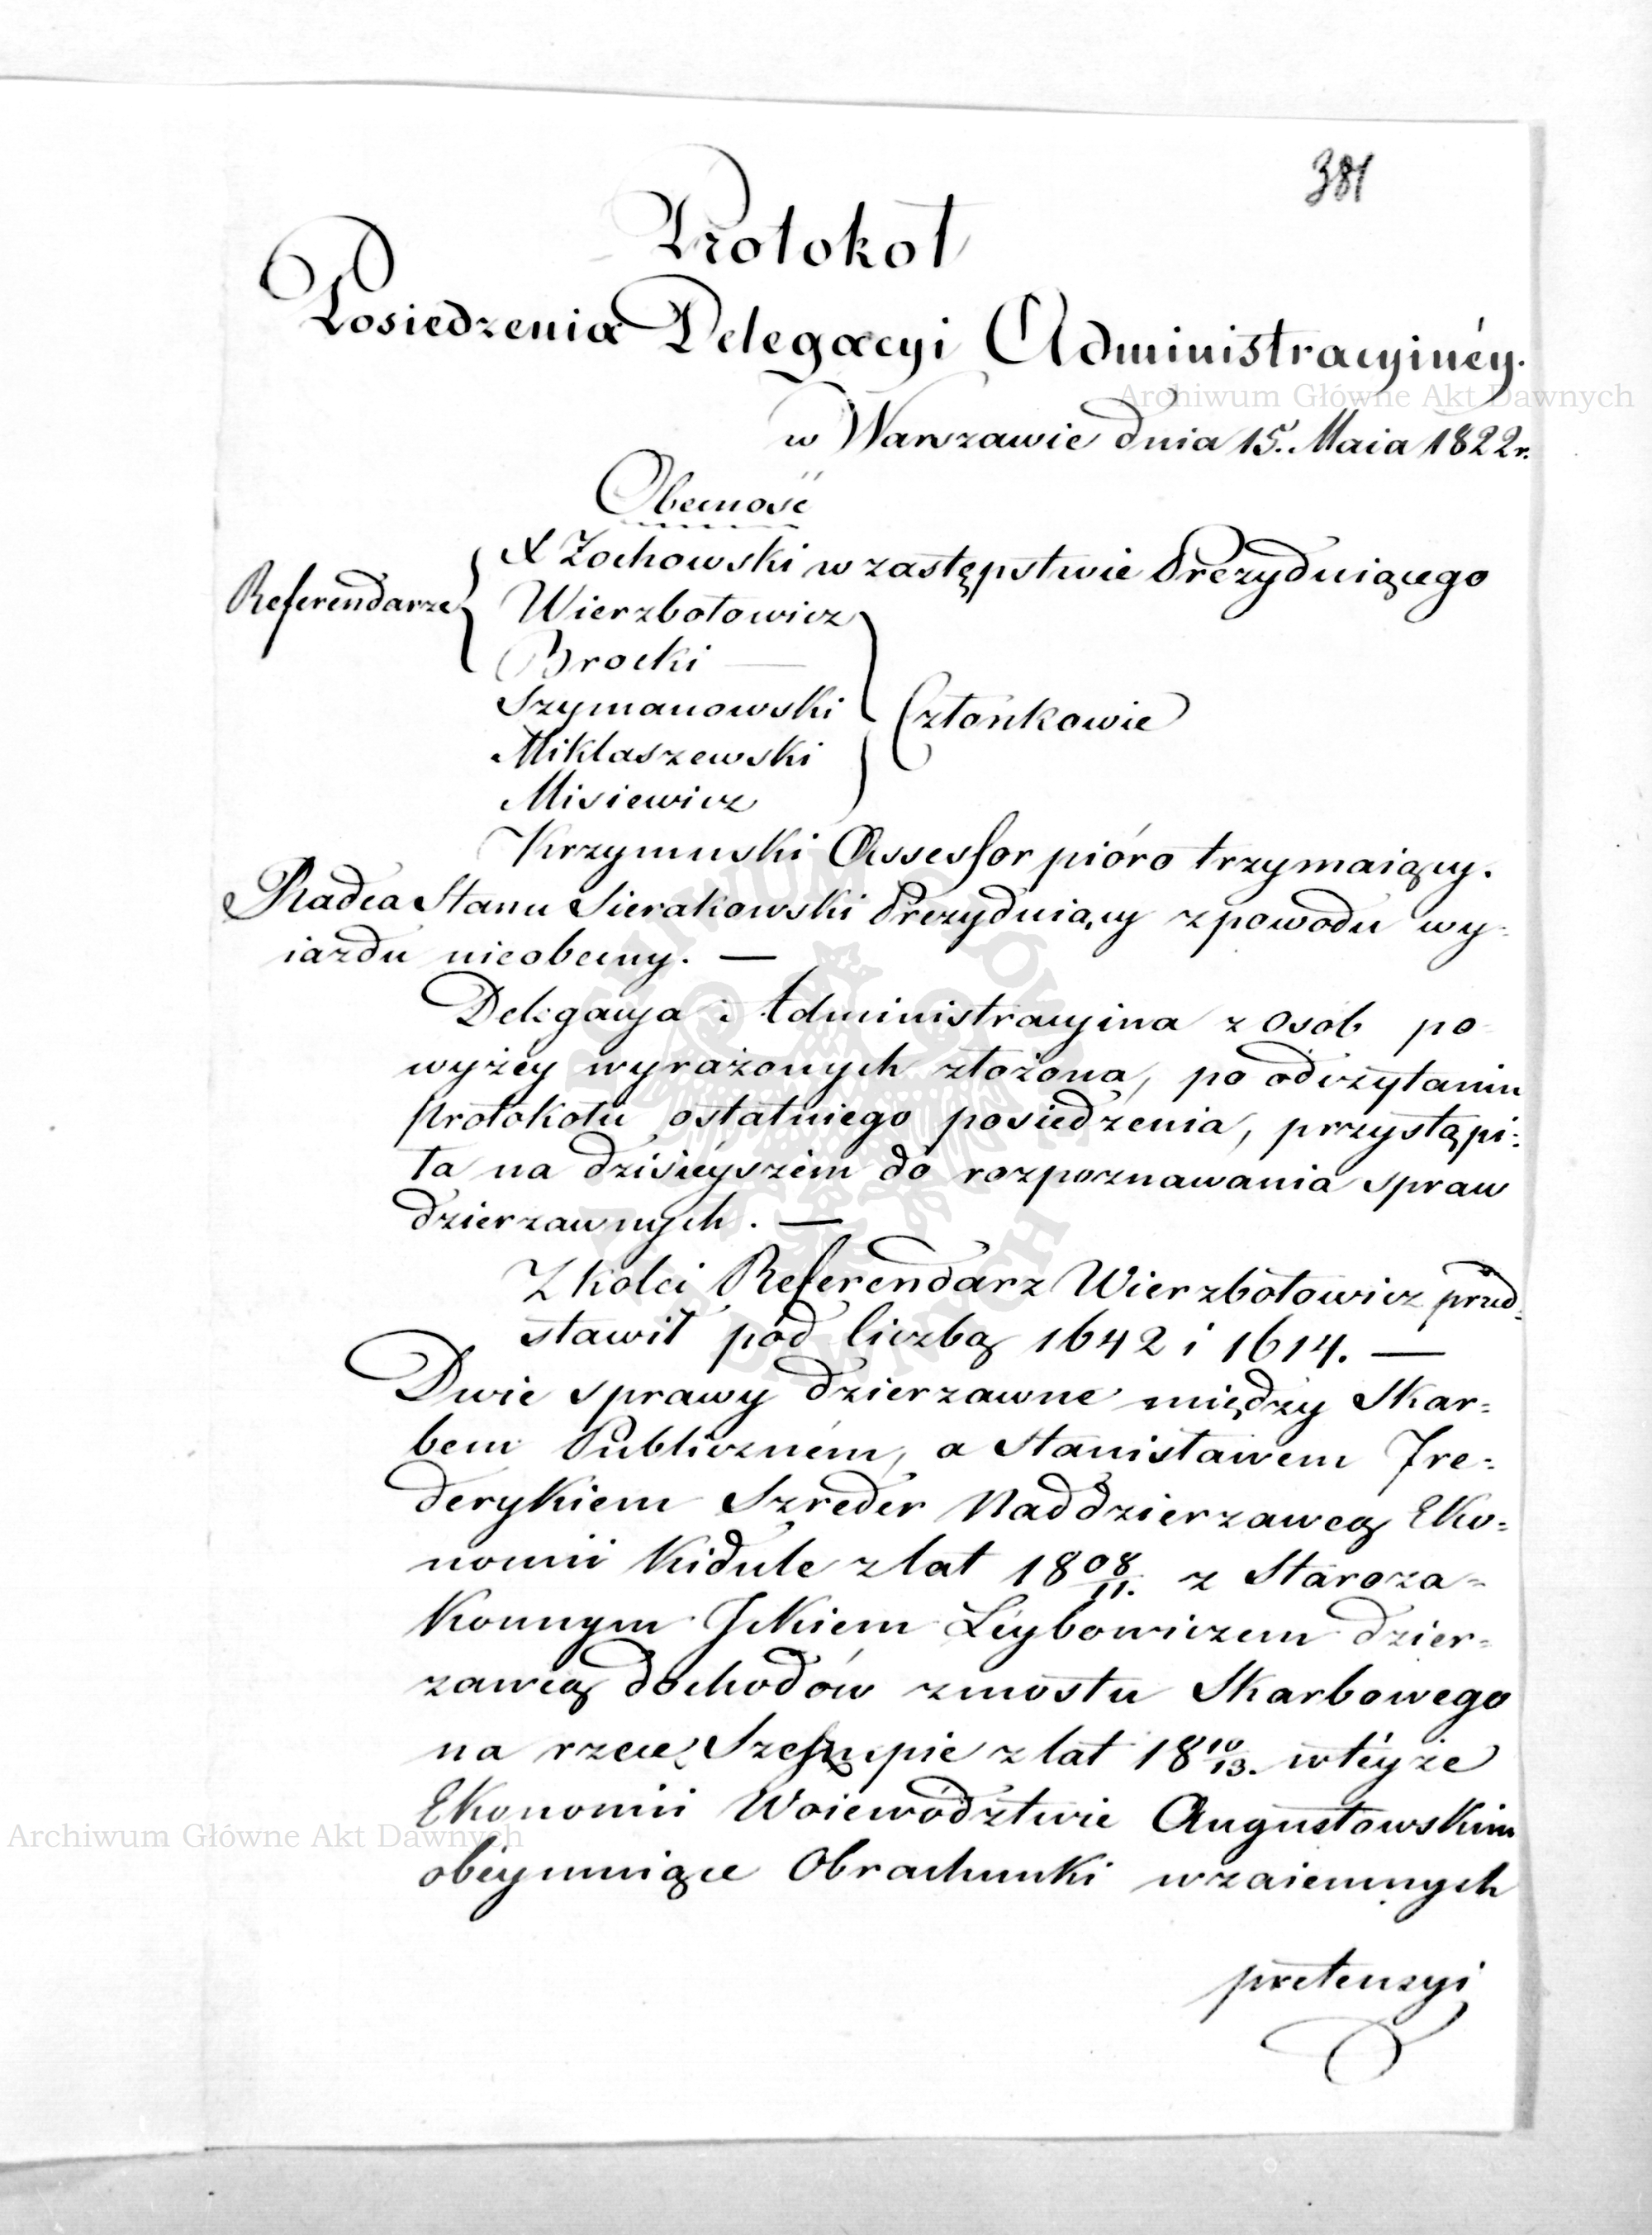 381
Protokoł
Posiedzenia Delegacyi Administracyinéy.
w Warszawie dnia 15. Maia 1822 r.
Obecność
X Żochowski w zastępstwie Prezyduiącego
Referendarze Wierzbołowicz
Brocki
Szymanowski
Członkowie
Miklaszewski
Misiewicz
Krzymuski Assessor pióro trzymaiący.
Radca Stanu Sierakowski Prezyduiący z powodu wy-
iazdu nieobecny. —
Delegacya Administracyina z osób po
wyżey wyrażonych złożona, po odczytaniu
protokołu ostatniego posiedzenia, przystąpi:
ła na dzisieyszém do rozpoznawania spraw
dzierzawnych. —
Z kolei Referendarz Wierzbołowicz przed-
stawił pod liczbą 1642 i 1614. —
Dwie sprawy dzierzawne między Skar=
bem Publiczném, a Stanisławem Fre=
derykiem Szreder Naddzierzawcą Eko=
nomii Kidule z lat 1808/11. z Staroza=
konnym Jckiem Leybowiczem dzier=
zawcą dochodów z mostu Skarbowego
na rzece Szeszupie z lat 1810/13. w téyże
Ekonomii Woiewództwie Augustowskim
obéymuiące Obrachunki wzaiemnych
pretensyi
Archiwum Główne Akt Dawnych
Archiwum Główne Akt Dawnych
ARCHIWUM GŁÓWNE AKT DAWNYCH